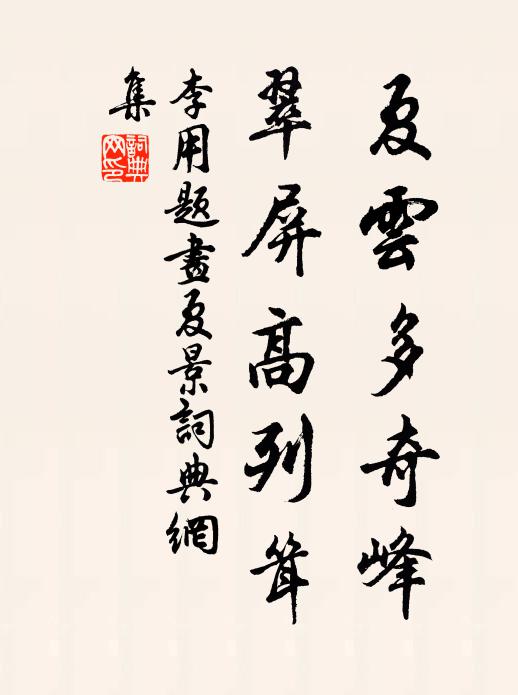 夏雲多奇峰
翠屏高列耸
李用題畫夏景詞典網
集
詞典
网印